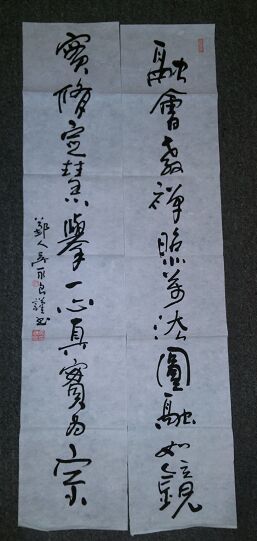 融會教禪照萬法圓融如鏡
實修定慧舉一心真實為宗
鄞人